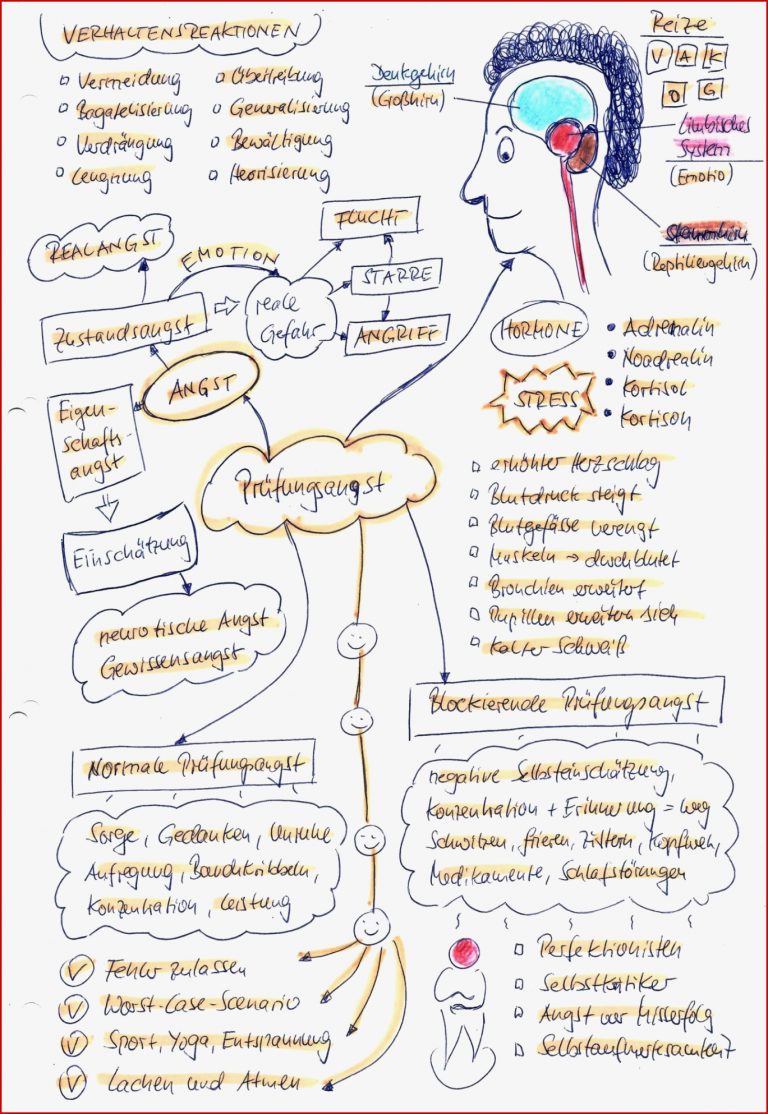 VERHALTENSREAKTIONEN
Vermeidung
Bagatelisierung
Verdrängung
Leugnung
Übertreibung
Generalisierung
Bewältigung
Theorisierung
Denkgehirn
(Großhirn)
Reize
V A K
O G
Limbisches
System
(Emotio)
Stammhirn
(Reptiliengehirn)
REALANGST
EMOTION
Zustandsangst
reale
Gefahr
FLUCHT
STARRE
ANGRIFF
ANGST
Eigen-
schafts-
angst
Einschätzung
neurotische Angst
Gewissensangst
Prüfungsangst
HORMONE
Adrenalin
Noadrealin
Kortisol
Kortison
STRESS
erhöhter Herzschlag
Blutdruck steigt
Blutgefässe verengt
Muskeln → durchblutet
Bronchien erweitert
Pupillen erweitern sich
Kalter Schweiß
Normale Prüfungsangst
Sorge, Gedanken, Unruhe
Aufregung, Bauchkribbeln,
Konzentration, Leistung
Fehler zulassen
Worst-Case-Scenario
Sport, Yoga, Entspannung
Lachen und Atmen
Blockierende Prüfungsangst
negative Selbsteinschätzung,
Konzentration + Erinnerung = weg
Schwitzen, frieren, Zittern, Kopfweh,
Medikamente, Schlafstörungen
Perfektionisten
Selbstkritiker
Angst vor Misserfolg
Selbstaufmerksamkeit